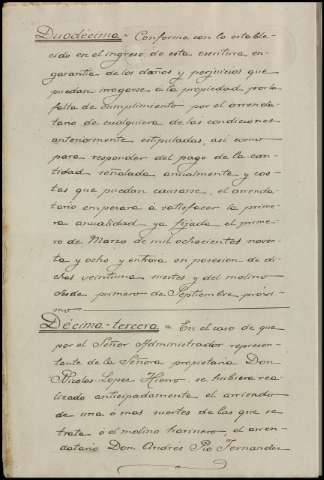 Duodécima = Conforme con lo estable-
cido en el ingreso de esta escritura, en
garantia de los daños y perjuicios que
puedan irrogarse a la propiedad por la
falta de cumplimiento por el arrenda-
tario de cualquiera de las condiciones
anteriormente estipuladas, asi como
para responder del pago de la can-
tidad señalada anualmente y cos-
tas que puedan causarse, el arrenda-
tario empezará a satisfacer la prime-
ra anualidad ya fijada el prime-
ro de Marzo de mil ochocientos noven-
ta y ocho y entrará en posesion de di-
chas veintiuna suertes y del molino
desde primero de Septiembre próxi-
mo
Décima-tercera = En el caso de que
por el Señor Administrador represen-
tante de la Señora propietaria Don
Nicolas Lopez Hierro se hubiera rea-
lizado anticipadamente el arriendo
de una ó mas suertes de las que se
trata ó el molino harinero el arren-
datario Don Andrés Pio Fernandez